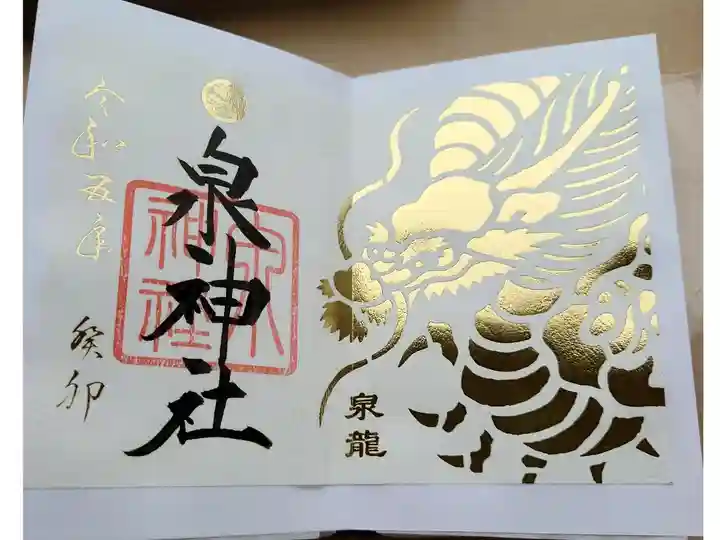 泉龍
泉神社
泉神社
令和五年
癸卯